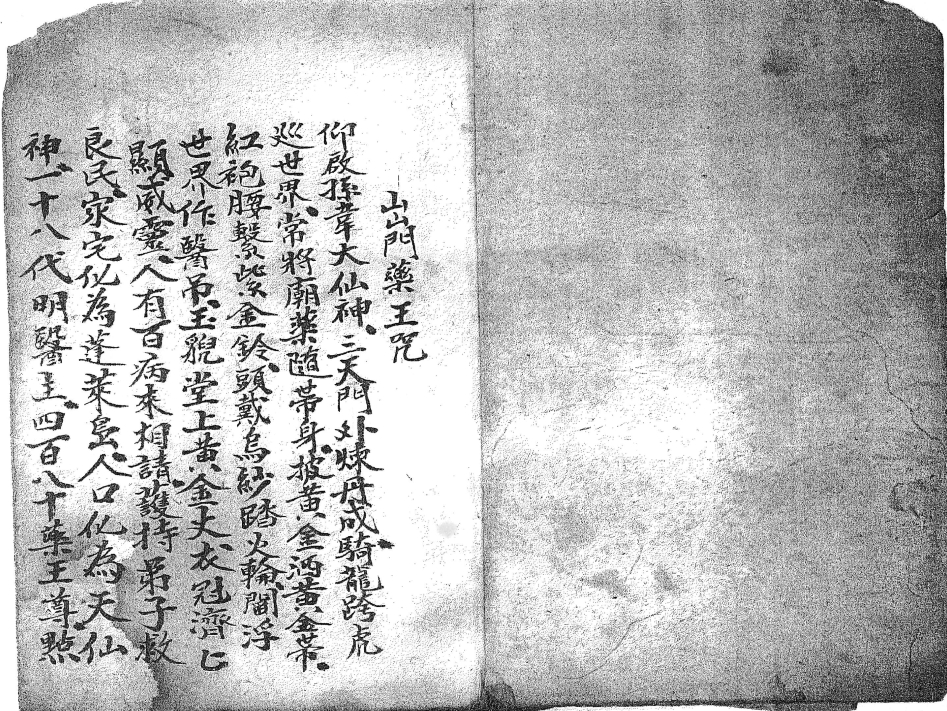 山門藥王咒
仰啟孫韋大仙神、三天門外煉丹成、騎龍跨虎
巡世界、常將廟藥隨帶身、披黃金洒黃金帶、
紅袍腰繫紫金鈴、頭戴烏紗踏火輪、閻浮
世界作醫吊、玉貌堂上黃金丈衣冠濟
顯威靈、人有百病來相請、護持弟子救
良民、家宅化為蓬萊島、人口化為天仙
神、一十八代明醫主、四百八十藥王尊、點